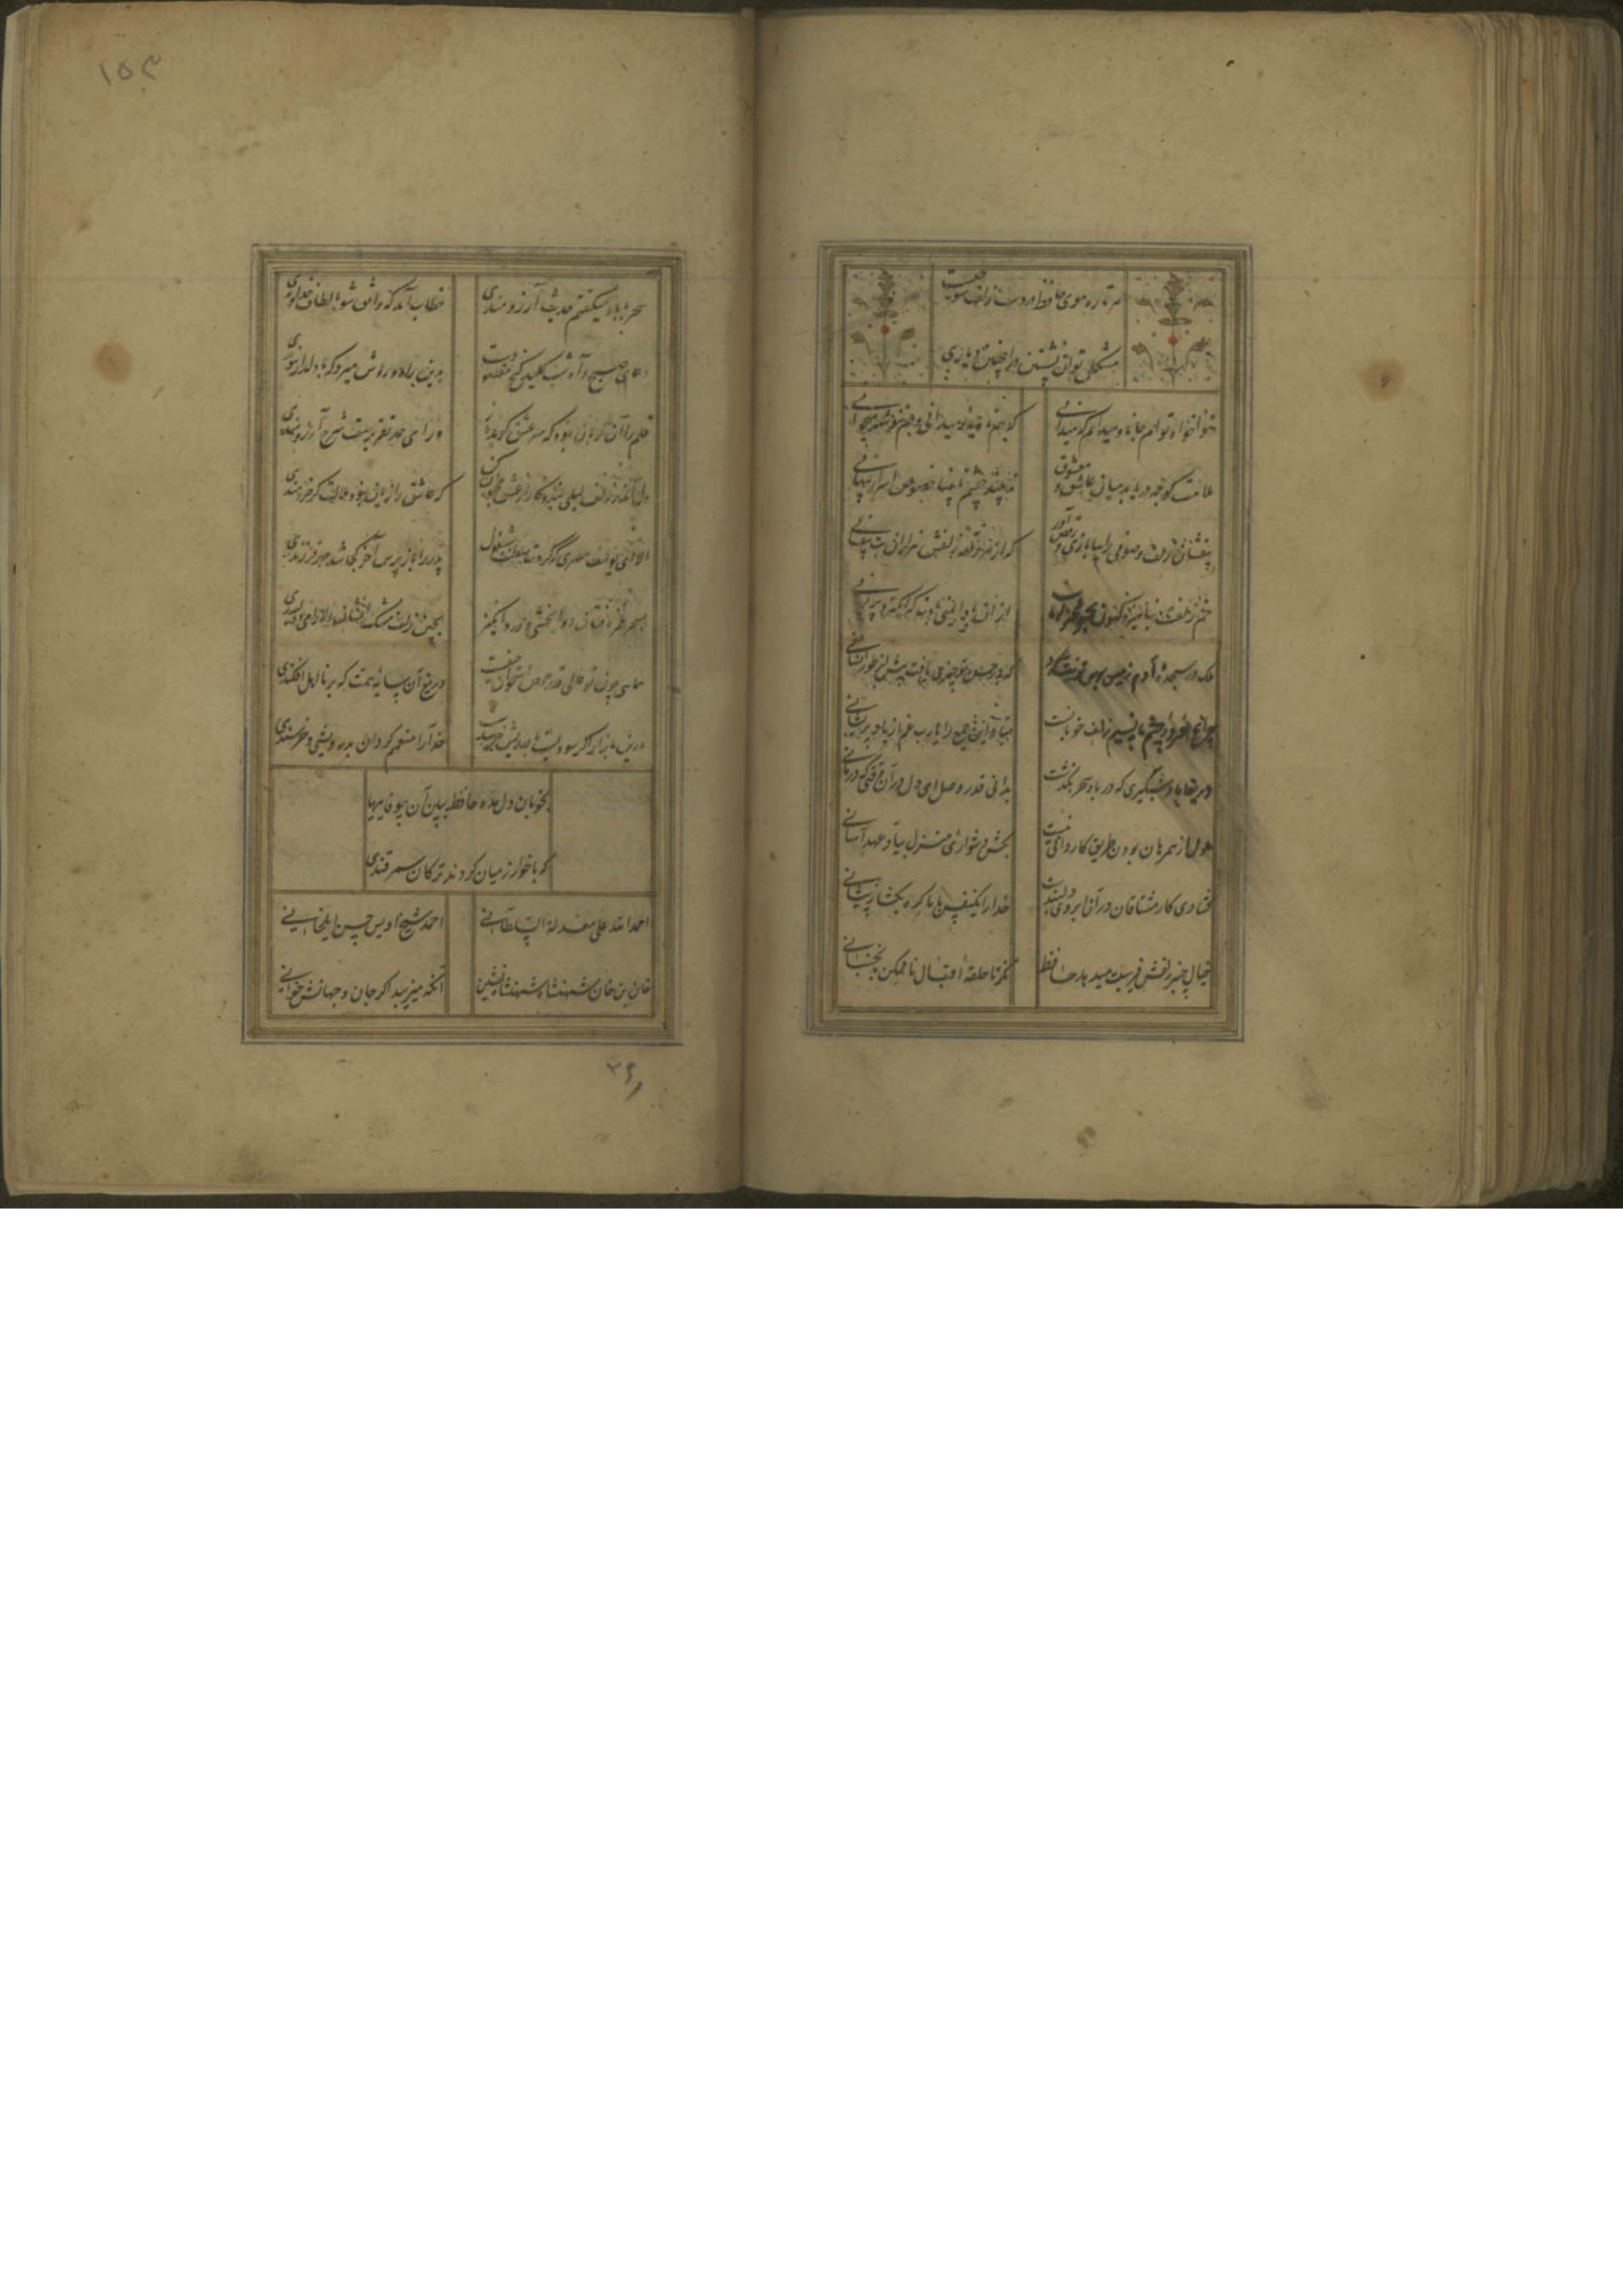 هر تاره موی حافظ در دست زلف شوخیست
مشکل توان نشستن در اینچنین دیاری
هواخواه توام جانا و میدانم که میدانی که هم نادیده میدانی و هم ننوشته میخوانی
ملامت گو چه دریابد میان عاشق و معشوق نه بیند چشم نابینا خصوص اسرار پنهانی
بیفشان زلف و صوفی را ببازی و رقص آور که از هر رقعهٔ دلقش هزاران بت بیفشانی
ملک در سجدهٔ آدم زمین بوس تو نیت کرد که در حسن تو چیزی یافت بیش از طور انسانی
چراغ افروز چشم ما نسیم زلف خوبانست مباد این جمع را یارب غم از باد پریشانی
دریغا باد شبگیری که در باد سحر بگذشت بدانی قدر وصل ای دل در آن وقتی که درمانی
ملول از همرهان بودن طریق کاردانی نیست بکش دشواری منزل بیاد عهد آسانی
گشاد کار مشتاقان در آن ابروی دلبندست خدا را یکنفس با ما گره بگشا ز پیشانی
خیال چنبر زلفش فریبت میدهد حافظ نگر تا حلقهٔ اقبال ناممکن نجنبانی
سحر با باد میگفتم حدیث آرزومندی خطاب آمد که واثق شو بالطاف خداوندی
دعای صبح و آه شب کلید گنج مقصودست بدین راه و روش میرو که با دلدار پیوندی
قلم را آن زبان نبود که سر عشق گوید باز ورای حد تقریرست شرح آرزومندی
دل اندر زلف لیلی بند و کار از عشق مجنون کن که عاشق را زیان بود و مقالات خردمندی
الا ای یوسف مصری که کردت سلطنت مشغول پدر را باز پرس آخر کجا شد مهر فرزندی
همایی چون تو عالی قدر حرص استخوان حیفست دریغ آن سایهٔ همت که بر نااهل افکندی
درین بازار اگر سودیست با درویش خرسندست خدایا منعمم گردان بدرویشی و خرسندی
بخوبان دل مده حافظ ببین آن بیوفاییها
که با خوارزمیان کردند ترکان سمرقندی
احمد الله علی معدلة السلطانی احمد شیخ اویس حسن ایلخانی
خان بن خان شهنشاه شهنشاه نشین آنکه میزیبد اگر جان و جهانش خوانی
۱۵۳